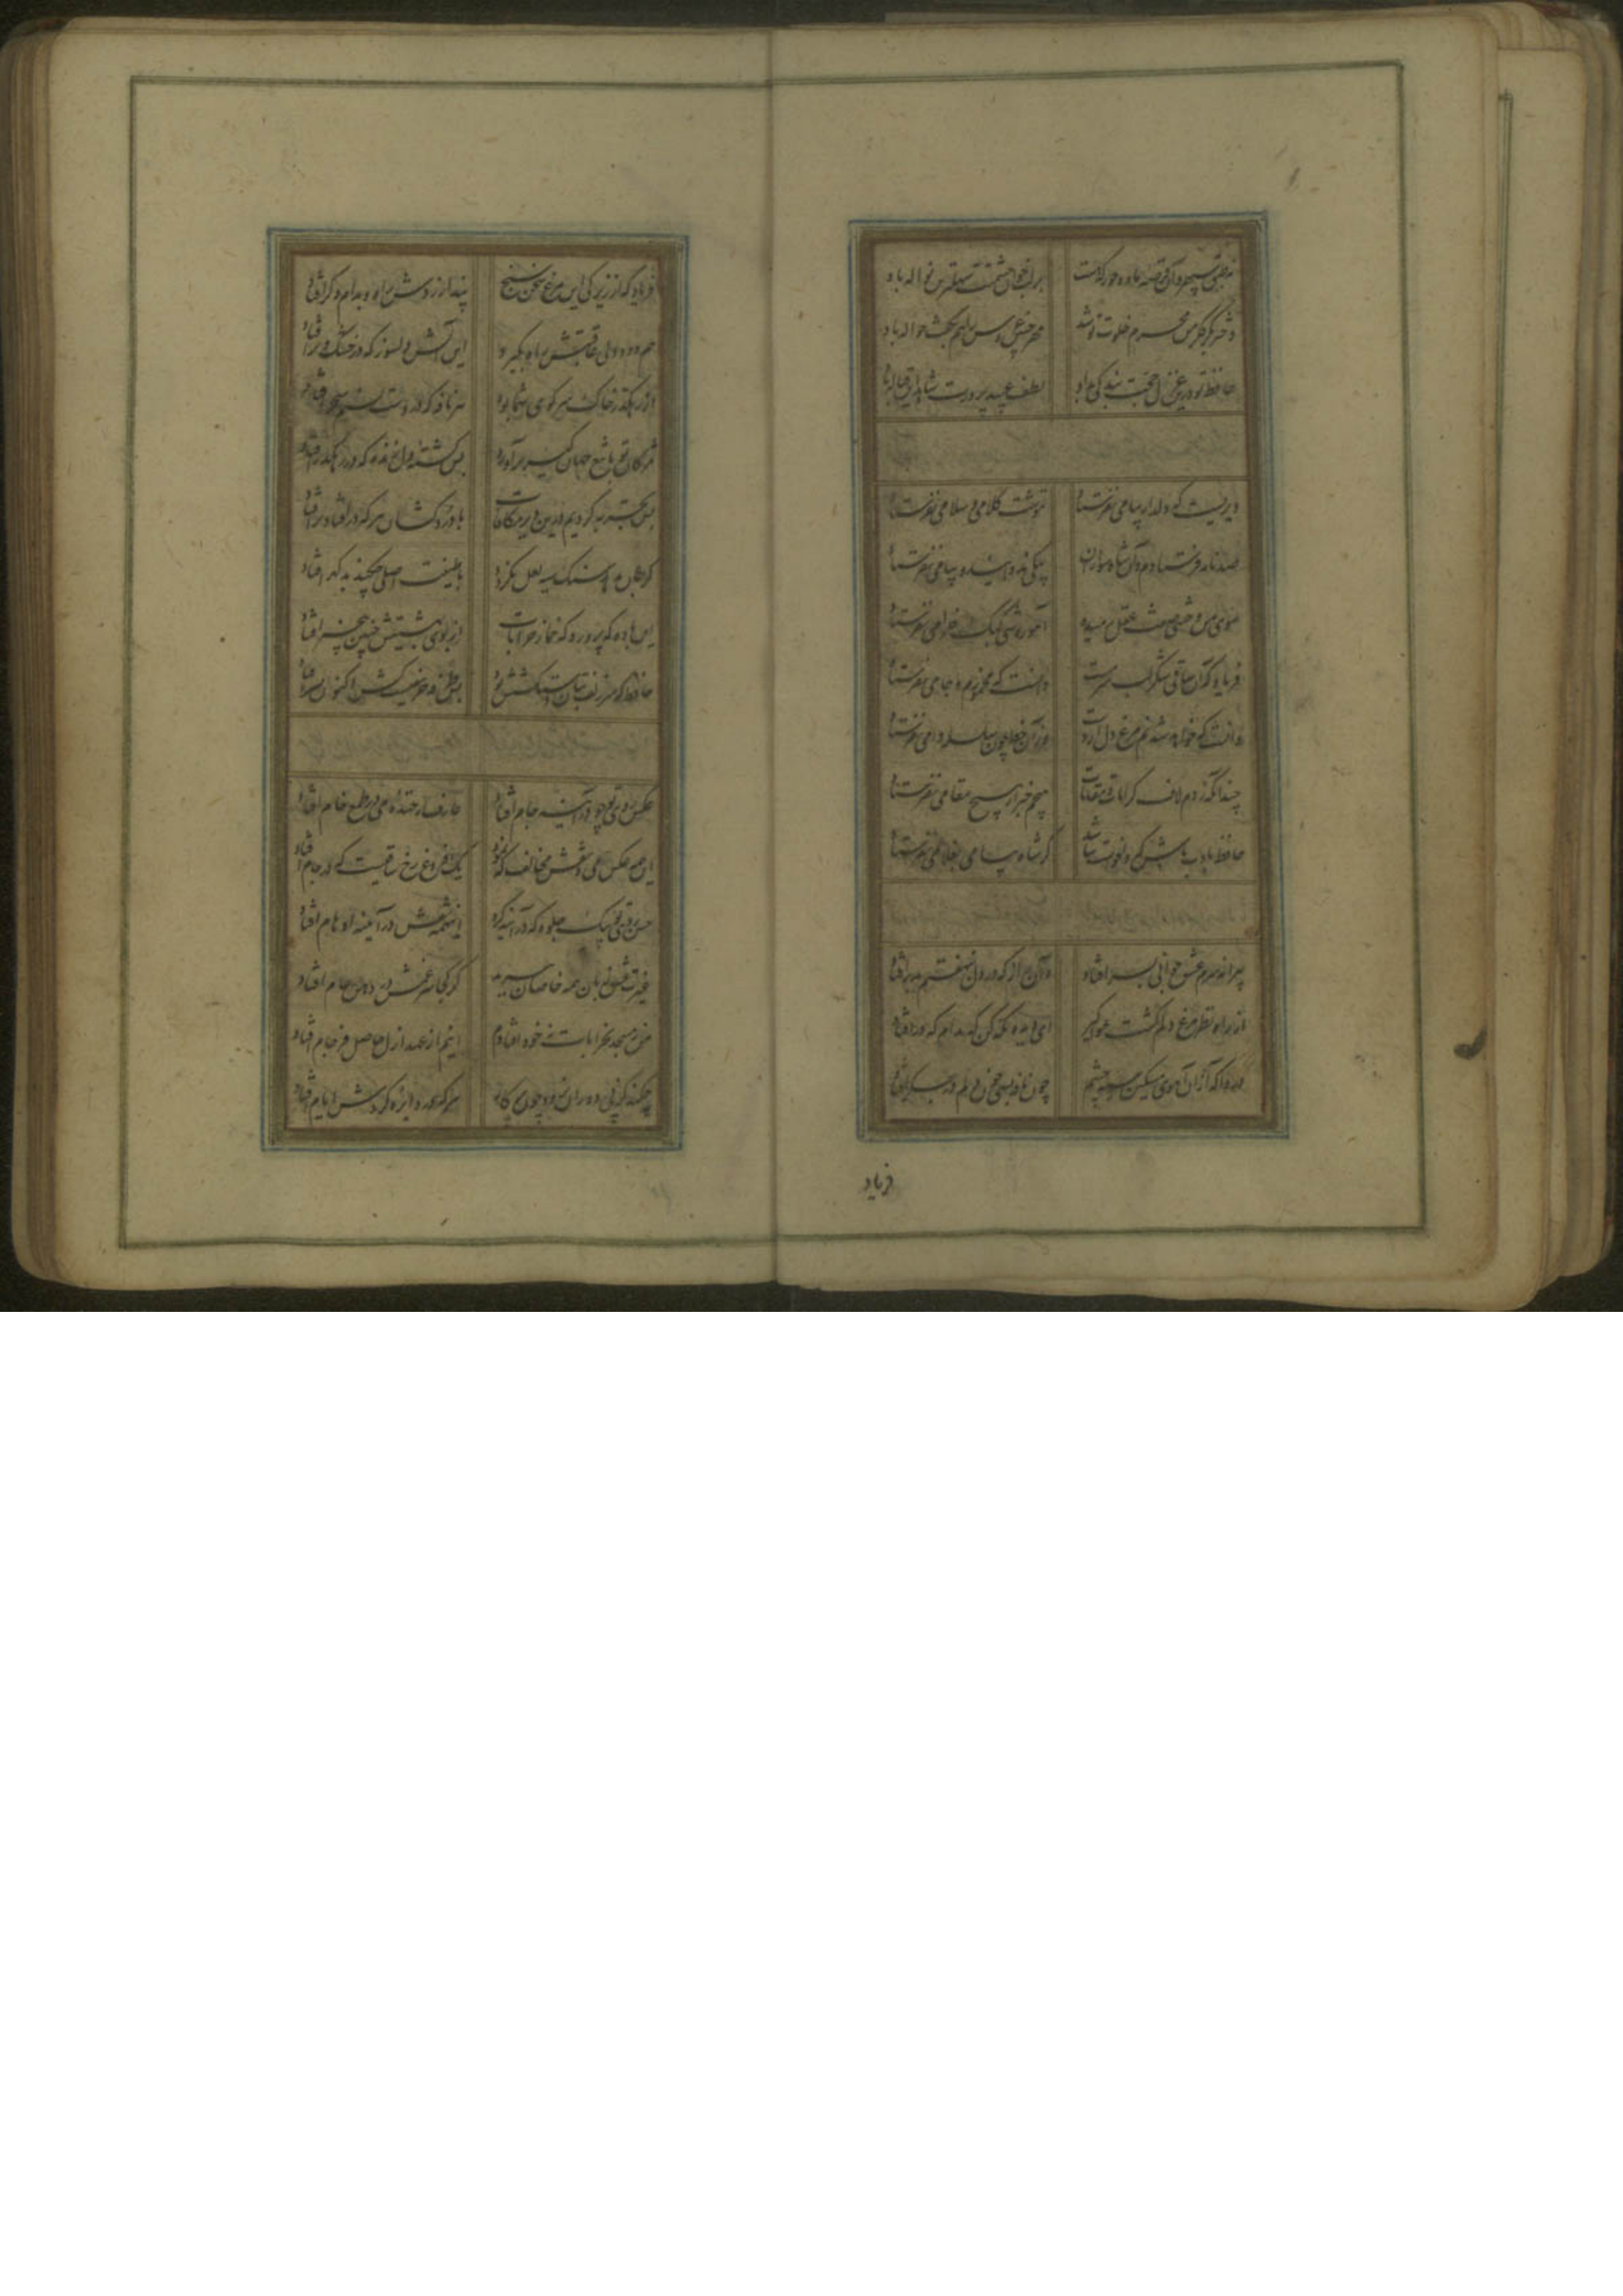 نه طبق سپهر و آن قرصه ماه و خور که هست بر لب خوان حشمتت سهلترین نواله باد
دختر بکر فکر من محرم خلوت تو شد مهر چنین عروس را هم بکفت حواله باد
حافظ تو درین غزل حجت بندگی داد لطف عبید پرورت شاهد این قباله باد
دیریست که دلدار پیامی نفرستاد ننوشت کلامی و سلامی نفرستاد
صد نامه فرستادم و آن شاه سواران پیکی ندوانید و پیامی نفرستاد
سوی من وحشی صفت عقل رمیده آهو روشی کبک خرامی نفرستاد
فریاد که آن ساقی شکر لب سرمست دانست که مخمورم و جامی نفرستاد
دانست که خواهد شدنم مرغ دل از دست وز آن خط چون سلسله دامی نفرستاد
چندانکه زدم لاف کرامات و مقامات هیچم خبر از هیچ مقامی نفرستاد
حافظ بادب باش که واخواست نباشد گر شاه پیامی بغلامی نفرستاد
پیرانه سرم عشق جوانی بسر افتاد و آن راز که در دل بنهفتم بدر افتاد
از راه نظر مرغ دلم گشت هواگیر ای دیده نگه کن که بدام که در افتاد
دردا که از آن آهوی مشکین سیه چشم چون نافه بسی خون دلم در جگر افتاد
فریاد
فریاد که از زیرکی این مرغ سخن سنج پندار زدش راه و بدام دگر افتاد
این آتش دلسوز که در خشک و تر افتاد
از رهگذر خاک سر کوی شما بود هر نافه که در دست نسیم سحر افتاد
مژگان تو تا تیغ جهان گیر برآورد بس کشته دل زنده که در رهگذر افتاد
بس تجربه کردیم درین دیر مکافات با دردکشان هر که در افتاد بر افتاد
گر جان بدهد سنگ سیه لعل نگردد با طینت اصلی چکند بد گهر افتاد
این باده که پرورد که خمار خرابات از بوی بهشتیش چنین بیخبر افتاد
حافظ که سر زلف بتان دستکشش بود بس طرفه حریفیست کش اکنون بسر افتاد
عکس روی تو چو در آینه جام افتاد عارف از خنده می در طمع خام افتاد
این همه عکس می و نقش مخالف که نمود یک فروغ رخ ساقیست که در جام افتاد
حسن روی تو بیک جلوه که در آینه کرد اینهمه نقش در آیینه اوهام افتاد
غیرت عشق زبان همه خاصان ببرید کز کجا سر غمش در دهن عام افتاد
من ز مسجد بخرابات نه خود افتادم اینم از عهد ازل حاصل فرجام افتاد
چکند کز پی دوران نرود چون پرگار هر که در دایره گردش ایام افتاد